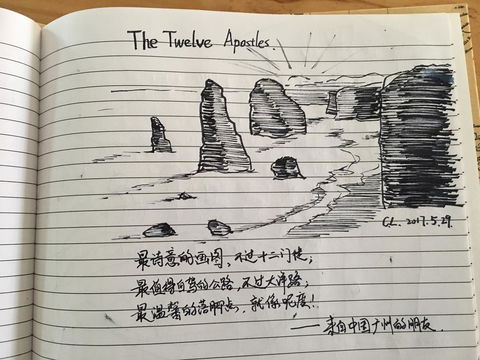 The Twelve Apostles.
C.L. 2017.5.29.
最诗意的画图，不过十二门徒；
最值得自驾的公路，不过大洋路；
最温馨的落脚点，就係呢度！
——来自中国广州的朋友.